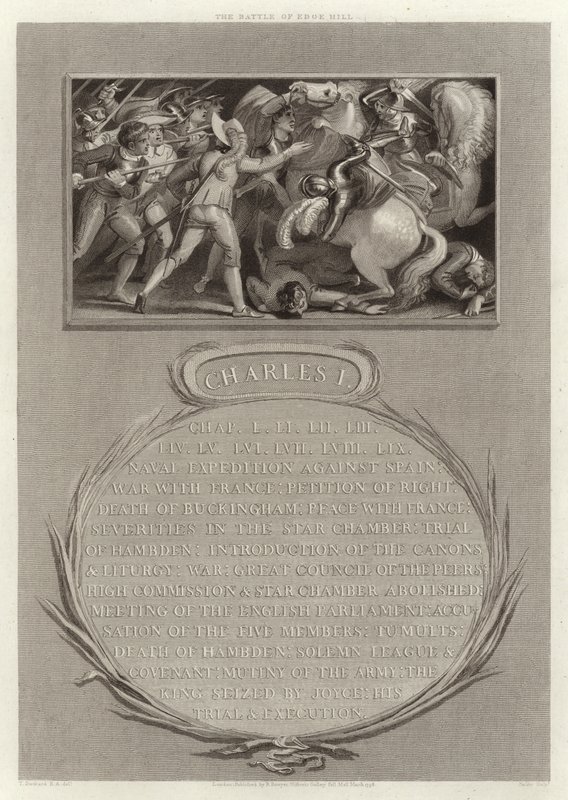 THE BATTLE OF EDGE HILL
CHARLES I.
CHAP. L. LI. LII. LIII.
LIV. LV. LVI. LVII. LVIII. LIX.
NAVAL EXPEDITION AGAINST SPAIN:
WAR WITH FRANCE: PETITION OF RIGHT:
DEATH OF BUCKINGHAM: PEACE WITH FRANCE:
SEVERITIES IN THE STAR CHAMBER: TRIAL
OF HAMBDEN: INTRODUCTION OF THE CANONS
& LITURGY: WAR: GREAT COUNCIL OF THE PEERS:
HIGH COMMISSION & STAR CHAMBER ABOLISHED:
MEETING OF THE ENGLISH PARLIAMENT: ACCU-
SATION OF THE FIVE MEMBERS: TUMULTS:
DEATH OF HAMBDEN: SOLEMN LEAGUE &
COVENANT: MUTINY OF THE ARMY: THE
KING SEIZED BY JOYCE: HIS
TRIAL & EXECUTION.
London; Published by R. Bowyer, Historic Gallery, Pall Mall, March 1798.